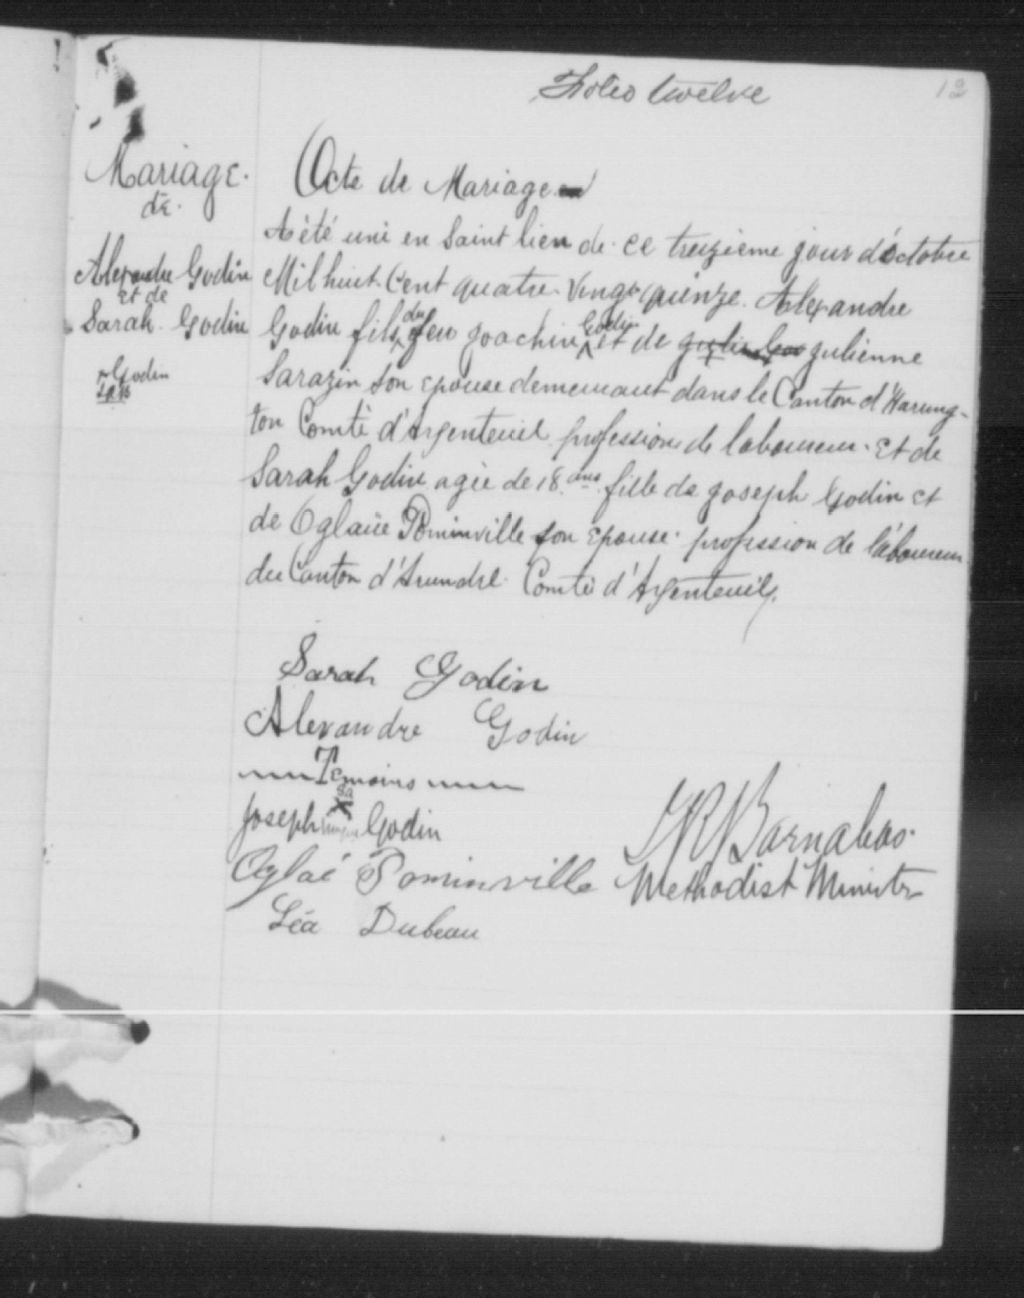 Folio twelve
12
Mariage.
de.
Alexandre Godin
et de
Sarah Godin
Godin
Acte de Mariage
A été uni en Saint lien de ce treizieme jour d'octobre
Mil huit Cent quatre Vingt quinze. Alexandre
Godin fils du feu Joachin Godin et de Julienne
Sarazin son epouse demeurant dans le Canton d'Harring-
ton Comté d'Argenteuil profession de laboureur. Et de
Sarah Godin agée de 18 ans fille de Joseph Godin et
de Oglaïe Pominville son epouse. profession de laboureur
du Canton d'Arundel. Comté d'Argenteuil.
Sarah Godin
Alexandre Godin
Temoins
sa
Joseph X Godin
Aglaé Pominville
Léa Dubeau
Barnabas.
Methodist Minister